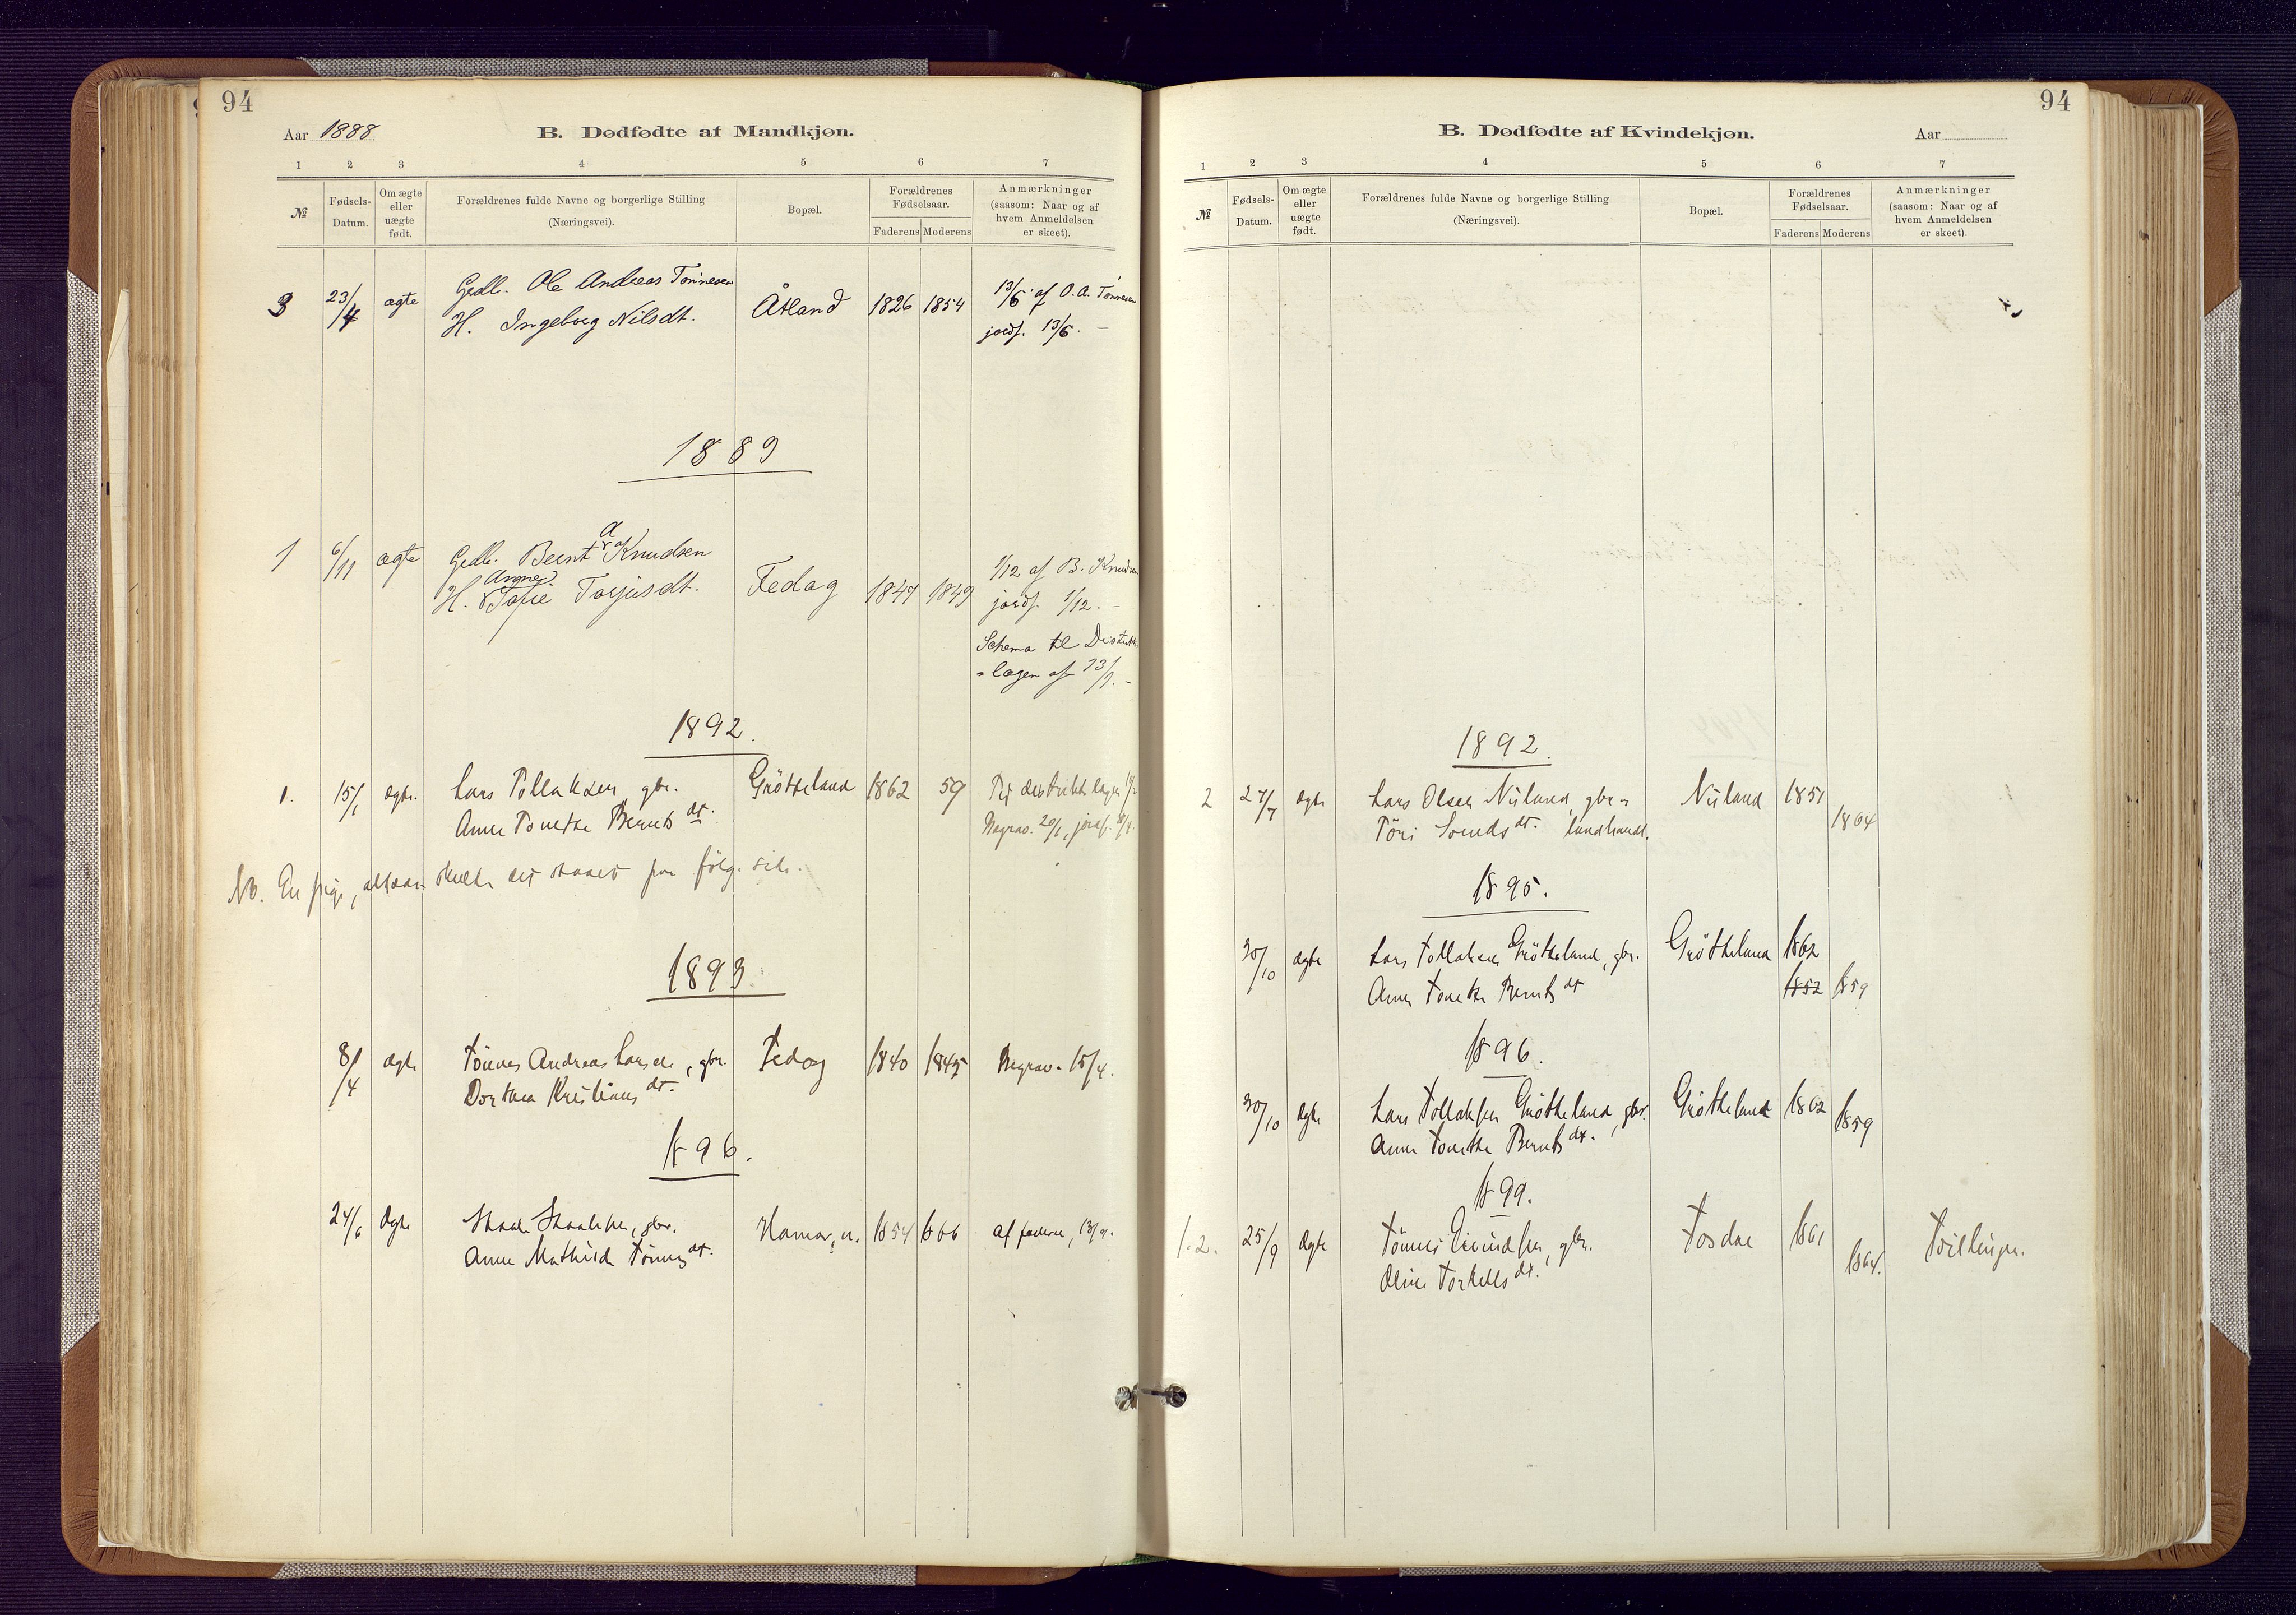 94
Aar 1888
B. Dødfødte af Mandkjøn.
1 2 3 4 5 6 7
№
Fødsels-Datum.
Om ægte eller uægte født.
Forældrenes fulde Navne og borgerlige Stilling (Næringsvei).
Bopæl.
Forældrenes Fødselsaar.
Faderens Moderens
Anmærkninger (saasom: Naar og af hvem Anmeldelsen er skeet).
3 23/4 ægte Gedb. Ole Andreas Tønnesen Åtland 1826 1854 13/5 af O. A. Tønnesen
H. Ingeborg Nilsdt. jordf. 13/5. —
1889
1 6/11 ægte Gedb. Bernt A Knudsen Fedog 1847 1849 1/12 af B. Knudsen
H. Anne Sofie Torjusdt. jordf. 1/12. —
Schema til Distrikts
=lægen af 13/1. —
1892.
1. 15/1 ægte. Lars Tollaksen gbr. Grötteland 1862 59 Til distriktslægen
Anne Tonette Bernts dt. Begrav. 20/1, jordf.
NB. En pige, altsaa skulde det staaet paa følg. side.
1893.
8/4 ægte Tönnes Andreas Larsen, gbr. Fedog 1840 1845 Begrav. 15/4.
Dorthea Kristians dt.
1896.
24/6 ægte gbr. Hamar, n. 1854 1866 af faderen, 13/9.
Anne Mathilde Tönnes dt.
94
B. Dødfødte af Kvindekjøn.
Aar
1 2 3 4 5 6 7
№
Fødsels-Datum.
Om ægte eller uægte født.
Forældrenes fulde Navne og borgerlige Stilling (Næringsvei).
Bopæl.
Forældrenes Fødselsaar.
Faderens Moderens
Anmærkninger (saasom: Naar og af hvem Anmeldelsen er skeet).
1892.
2 27/7 ægte Lars Olsen Nuland, gbr. = Nuland 1851
Töri Svends dt. landhandl. 1864
1895.
30/10 ægte Lars Tollaksen Grötteland, gbr. Grötteland 1862
Anne Tonette Bernts dt 1852 1859
1896.
30/10 ægte Lars Tollaksen Grötteland, gbr. Grötteland 1862
Anne Tonette Bernts dt. 1859
1899.
1. 2. 25/9 ægte Tönnes Eivindsen, gbr. Josdal 1861 Tvillinger.
Oline Torkells dt. 1864.